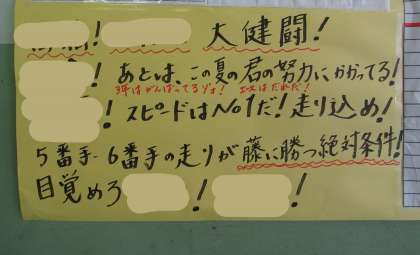 ！ 大健闘！
！ あとは、この夏の君の努力にかかってる！
3年はがんばってるゾォ！ エースはだれだ！
！ スピードはNo1だ！走り込め！
5番手・6番手の走りが藤に勝つ絶対条件！
目覚めろ ！ ！